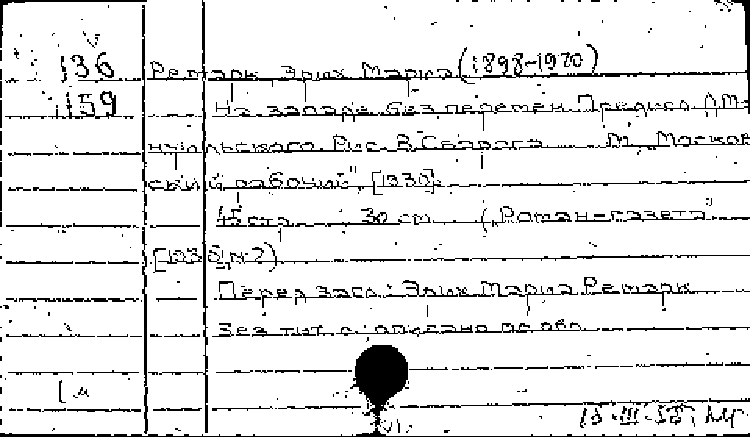 136 Ремарк Эрих Мария (1898-1970)
1159 На западе без перемен. Предисл. Д.Ма-
нуильского. Рис. В. Сварога М. "Москов
ский рабочий", [1930].
45 стр. 30 см. ("Роман-газета"
[1930, №2)
Перед загл.: Эрих Мария Ремарк
Без тит. л. описано по обл.
15.III.58г.